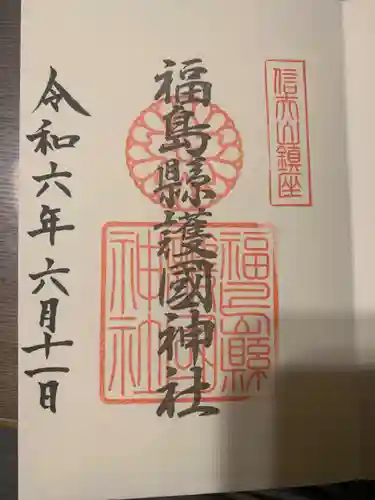 信夫山鎮座
福島縣護國神社
福島縣護國神社
令和六年六月十一日